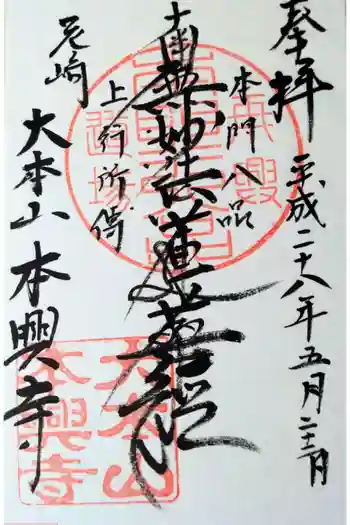 奉拝
平成二十八年五月二十二日
本門八品
南無妙法蓮華經
上行所傳
尼崎
大本山 本興寺
大本山
本興寺